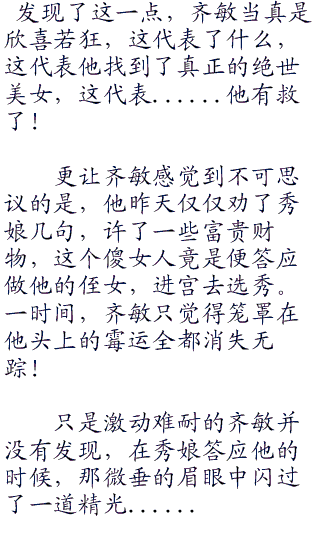 发现了这一点，齐敏当真是
欣喜若狂，这代表了什么，
这代表他找到了真正的绝世
美女，这代表......他有救
了！
更让齐敏感觉到不可思
议的是，他昨天仅仅劝了秀
娘几句，许了一些富贵财
物，这个傻女人竟是便答应
做他的侄女，进宫去选秀。
一时间，齐敏只觉得笼罩在
他头上的霉运全都消失无
踪！
只是激动难耐的齐敏并
没有发现，在秀娘答应他的
时候，那微垂的眉眼中闪过
了一道精光......